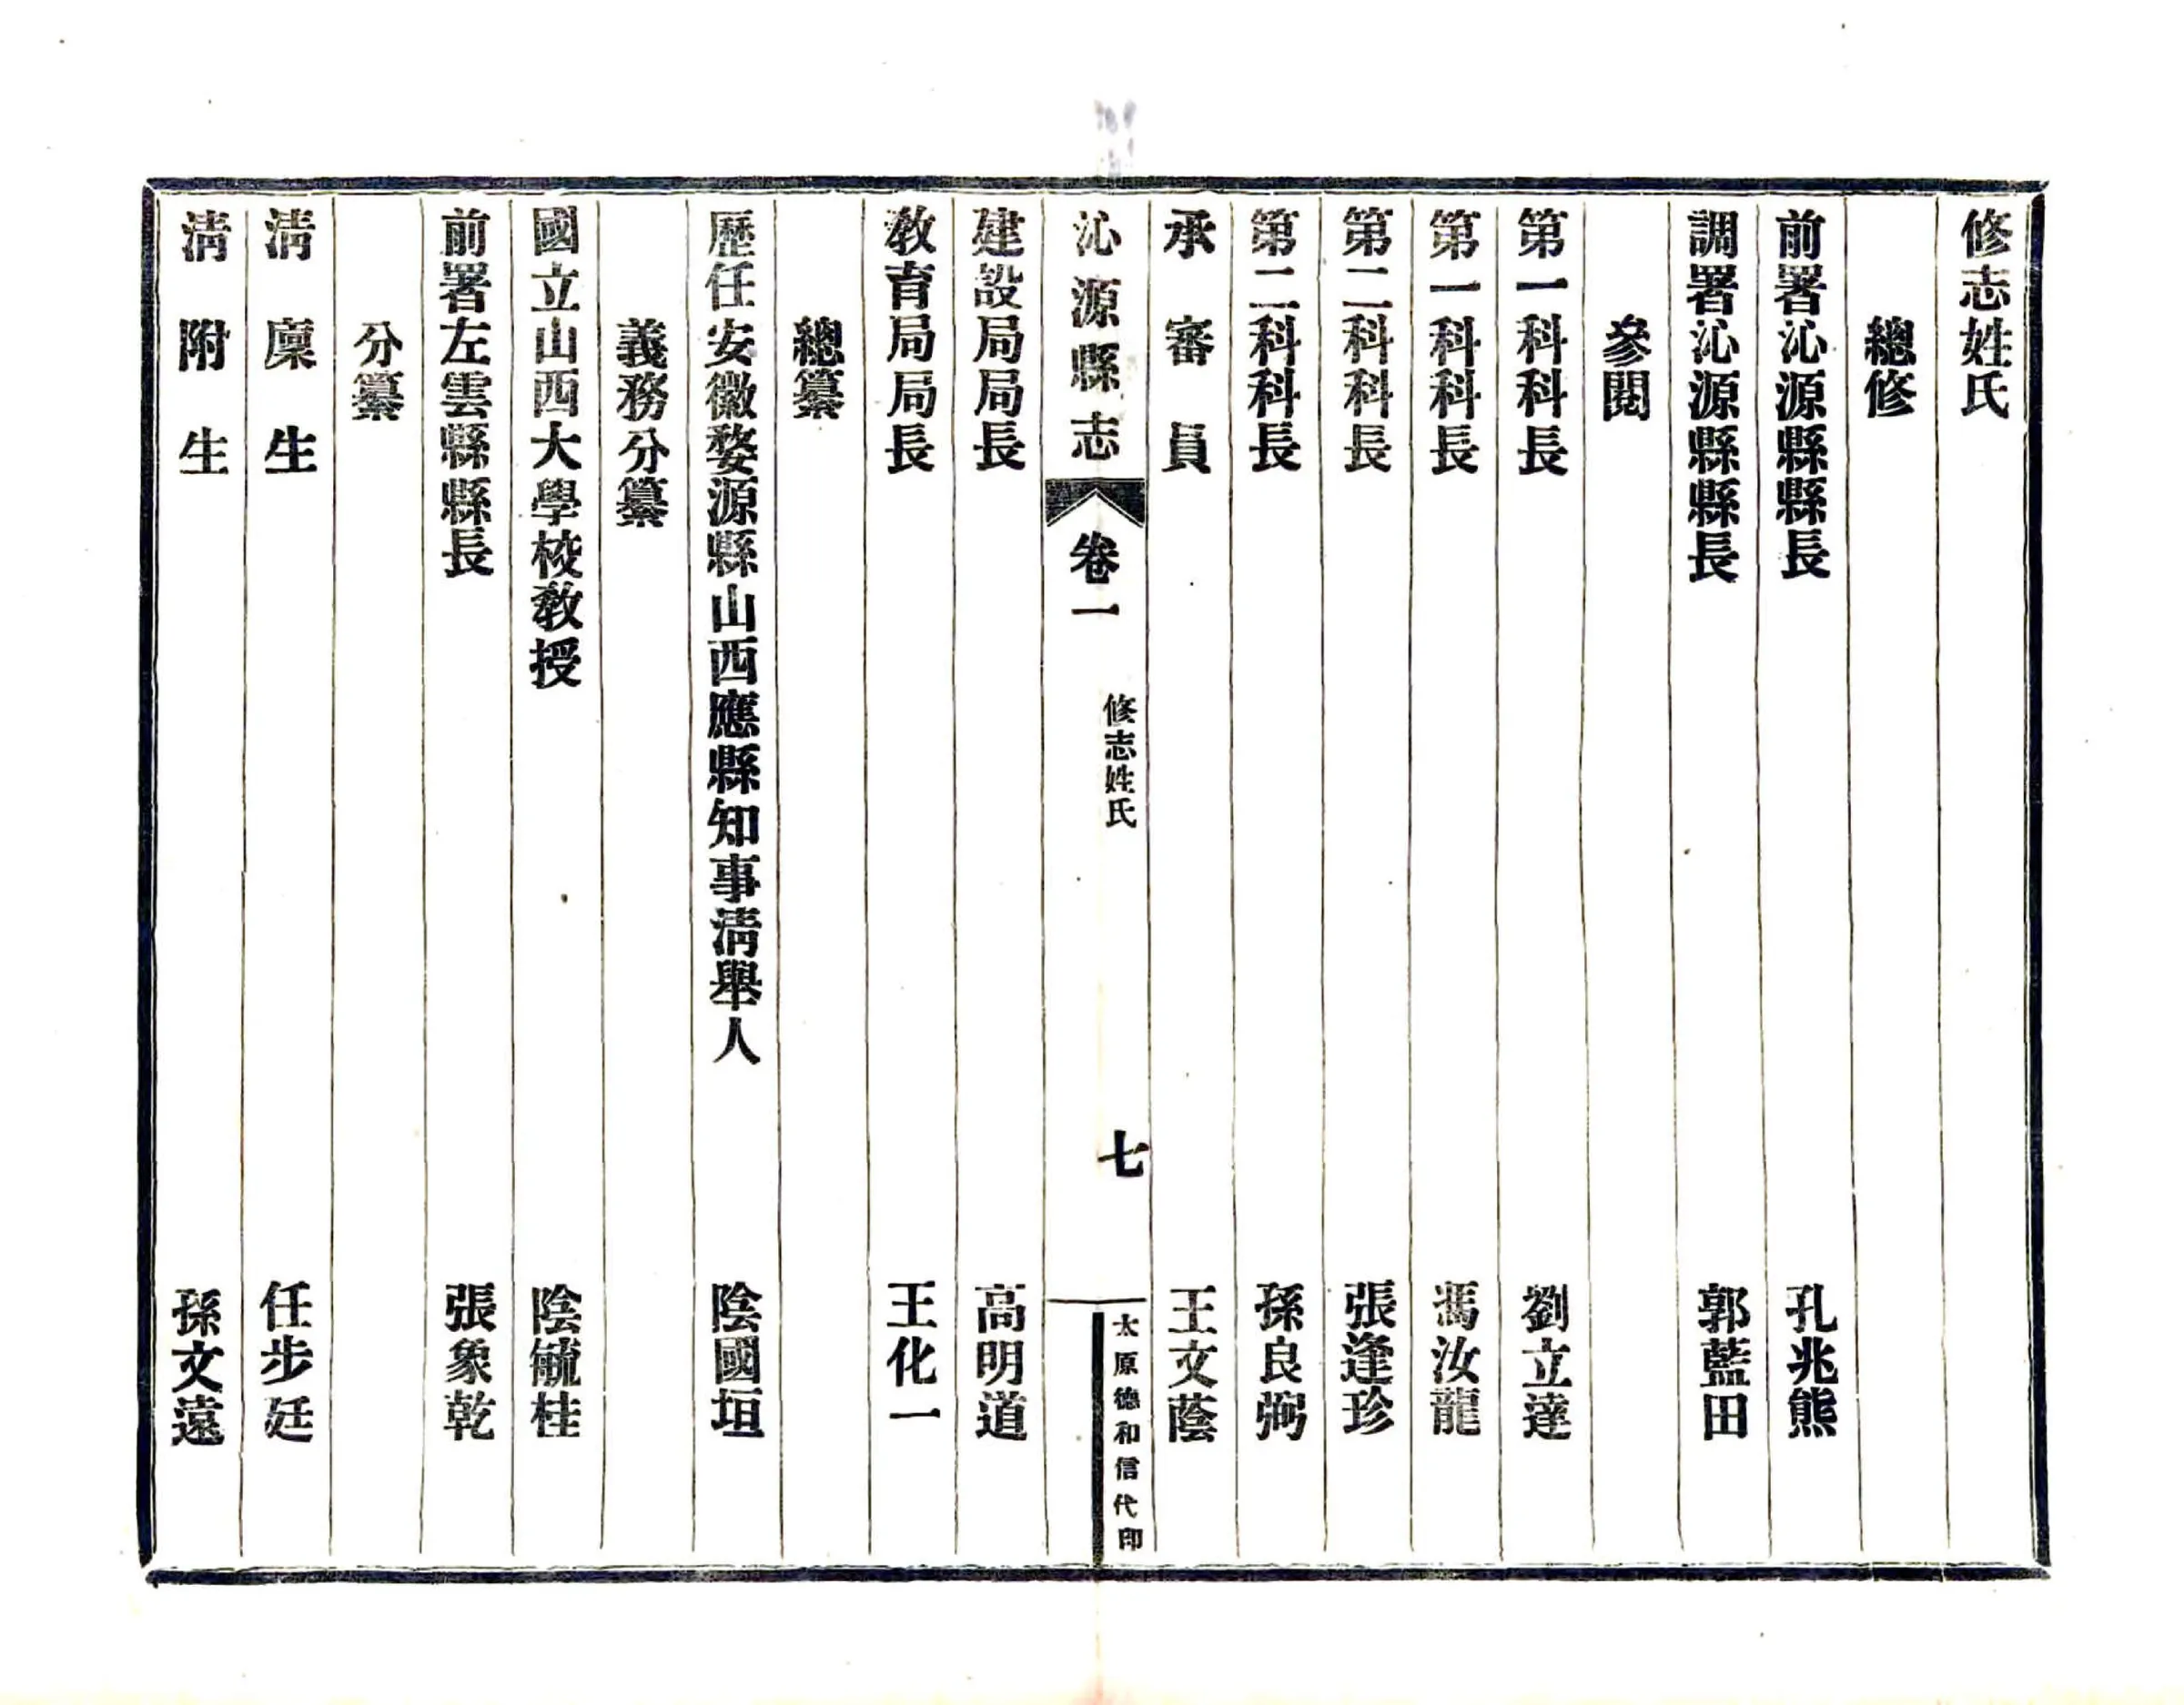 修志姓氏
總修
前署沁源縣縣長　孔兆熊
調署沁源縣縣長　郭藍田
參閱
第一科科長　劉立達
第一科科長　馮汝龍
第二科科長　張逢珍
第二科科長　孫良弼
承審員　王文蔭
沁源縣志　卷一　修志姓氏　七　太原德和信代印
建設局局長　高明道
敎育局局長　王化一
總纂
歷任安徽婺源縣山西應縣知事淸舉人　陰國垣
義務分纂
國立山西大學校敎授　陰毓桂
前署左雲縣縣長　張象乾
分纂
淸廩生　任步廷
淸附生　孫文遠